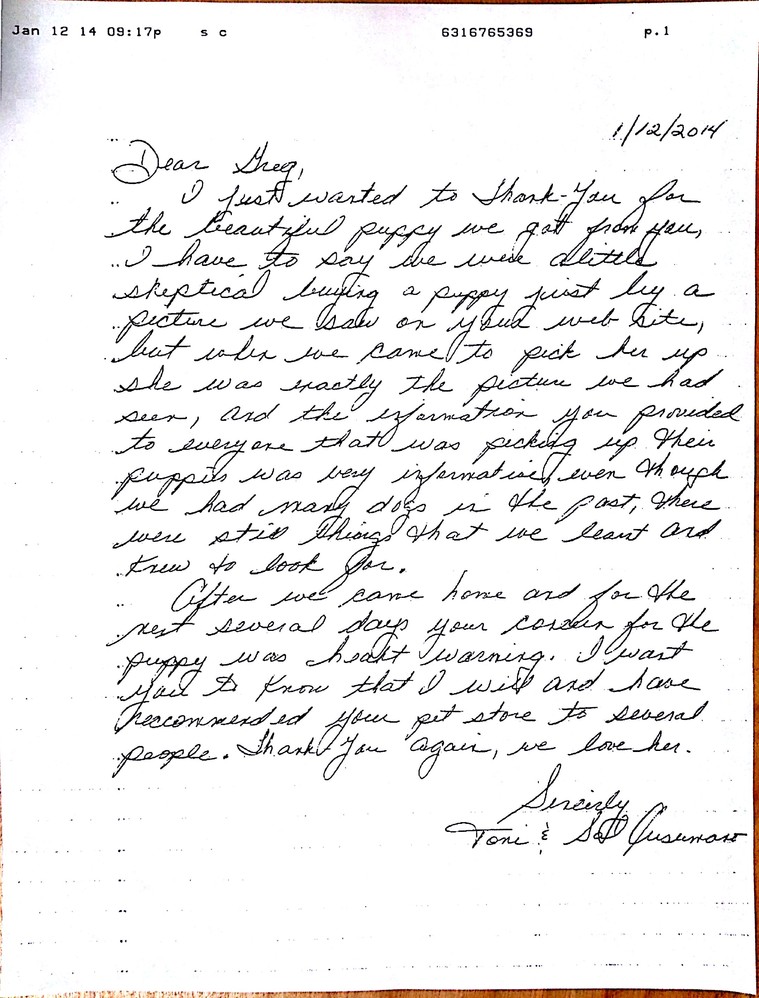 Jan 12 14 09:17p s c 6316765369 p.1
1/12/2014
Dear Greg,
I just wanted to Thank-You for
the beautiful puppy we got from you,
I have to say we were alittle
skeptical buying a puppy just by a
picture we saw on your web site,
but when we came to pick her up
she was exactly the picture we had
seen, and the information you provided
to everyone that was picking up their
puppies was very informative, even though
we had many dogs in the past, there
were still things that we learnt and
knew to look for.
After we came home and for the
next several days your concern for the
puppy was heart warning. I want
you to know that I will and have
reccommended your pet store to several
people. Thank You again, we love her.
Sincerly
Toni & Sal